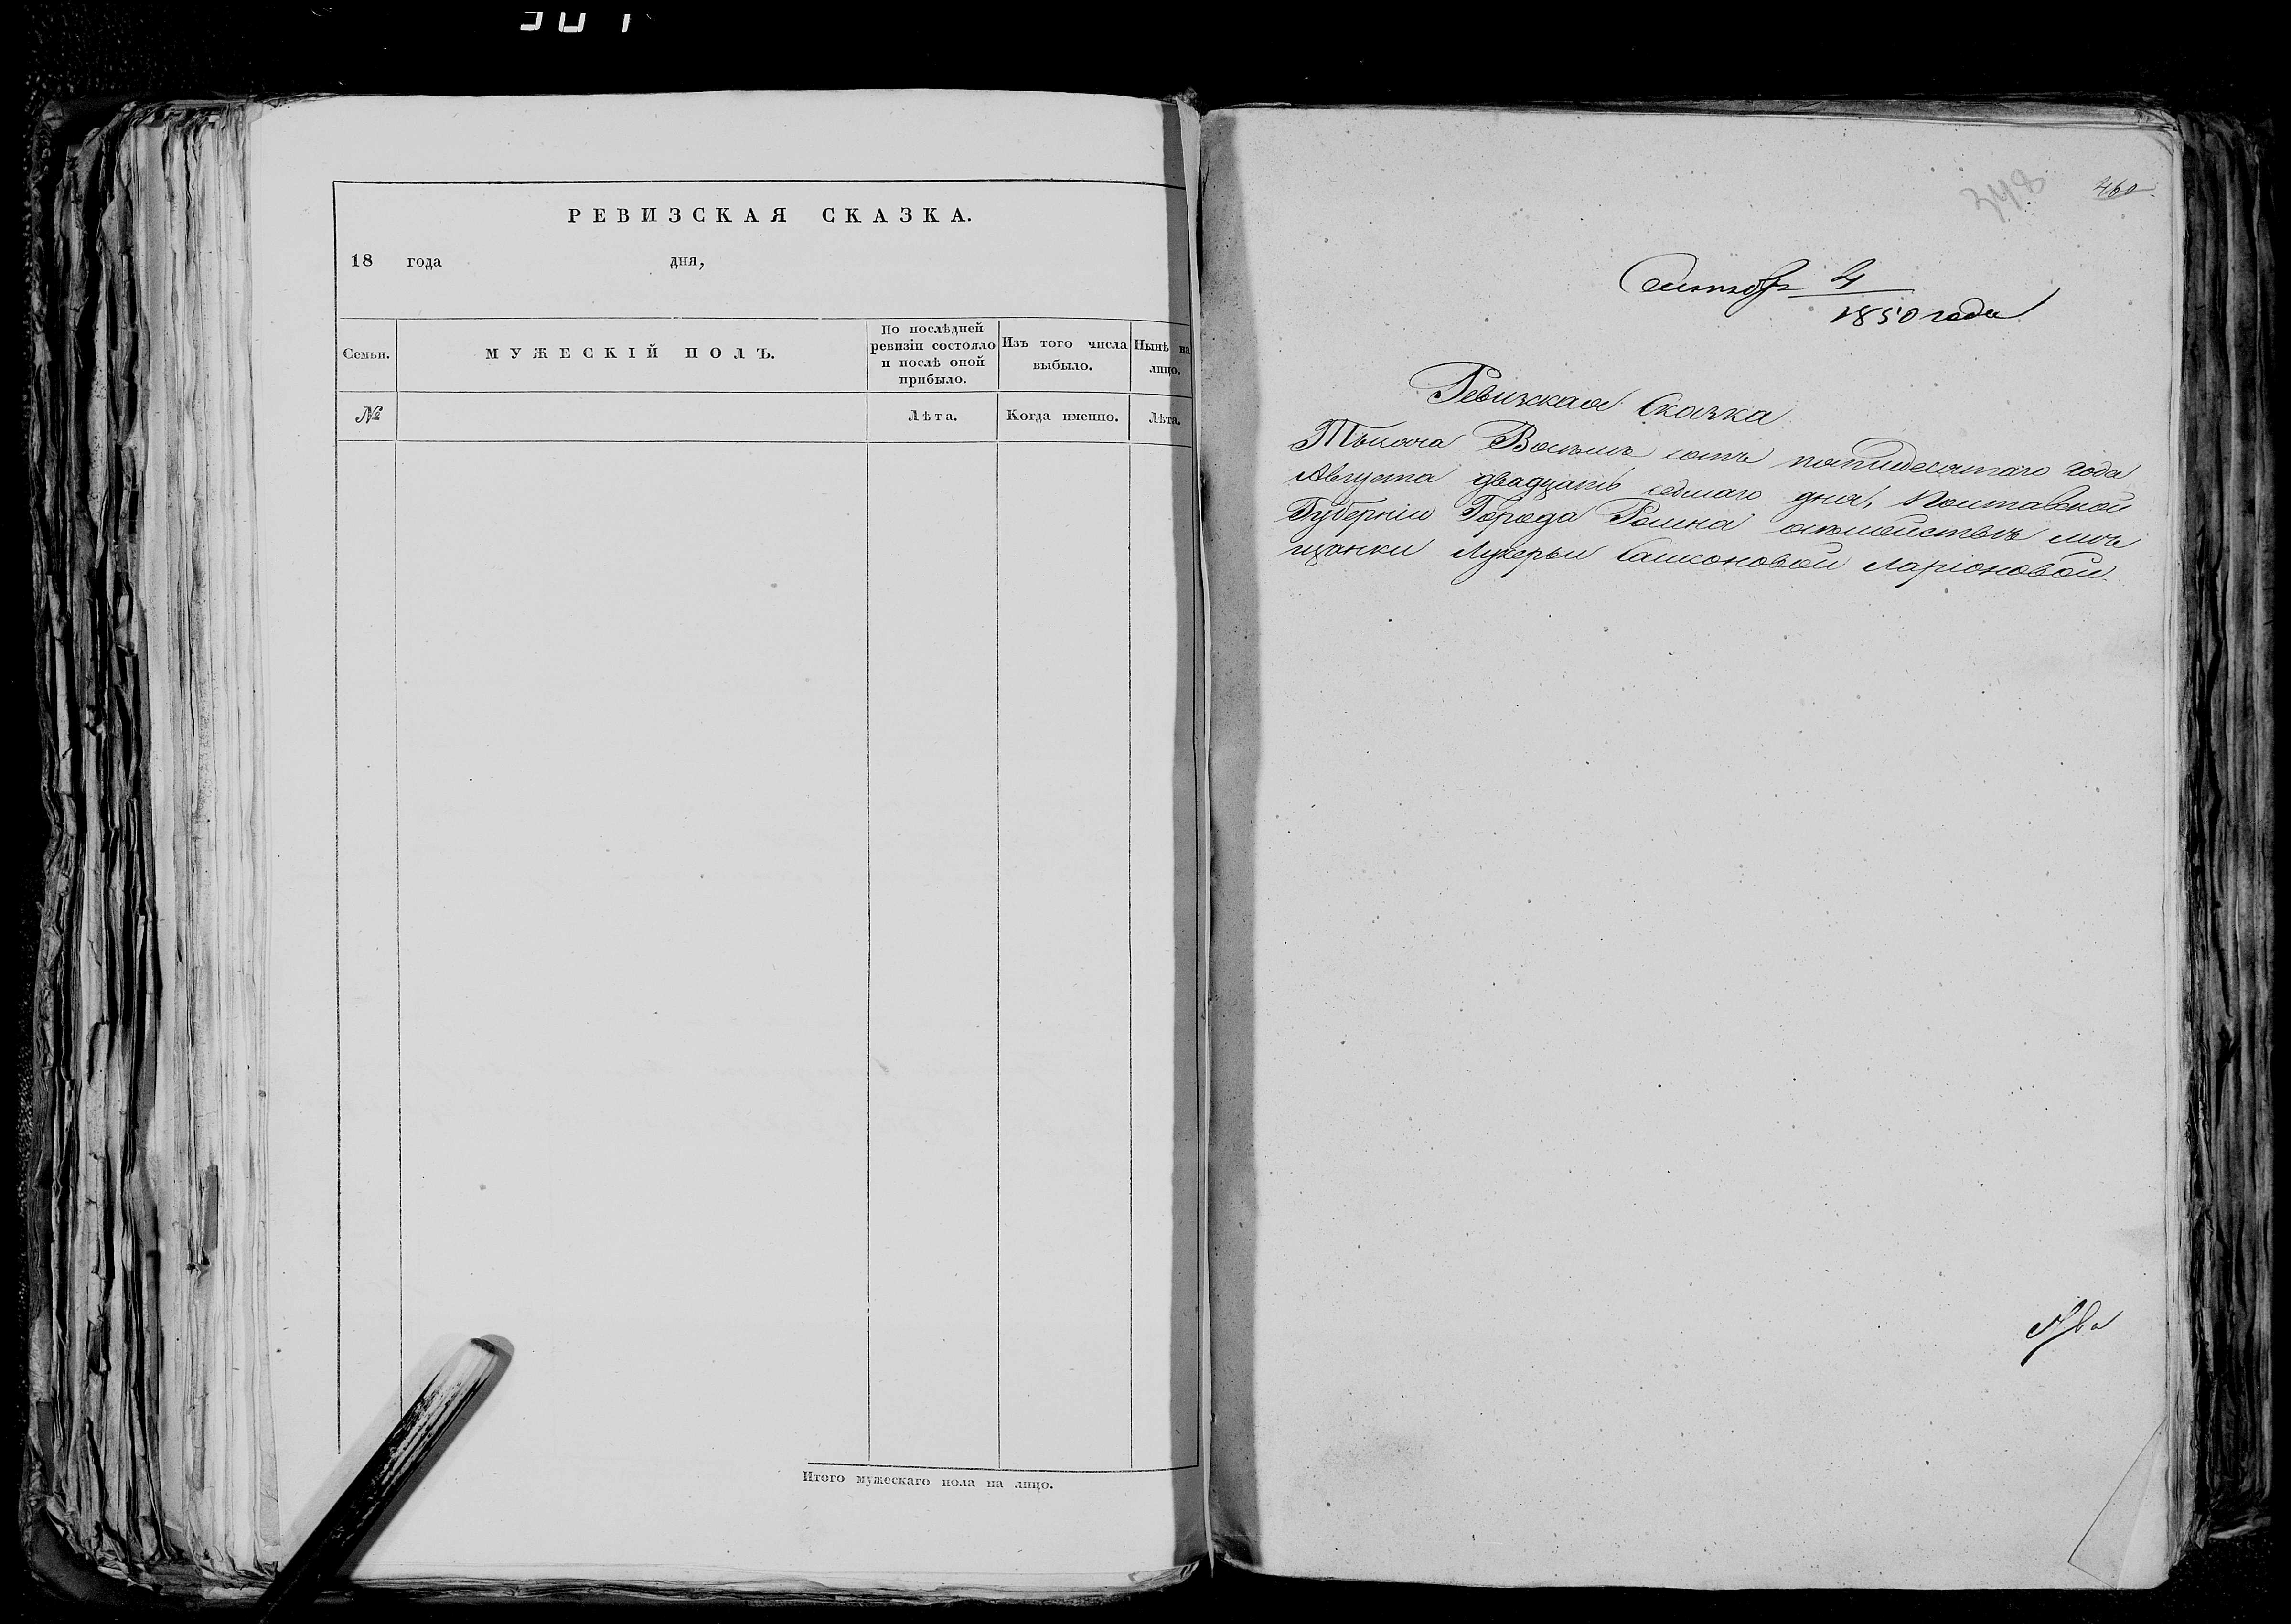 РЕВИЗСКАЯ СКАЗКА.
18 года дня,
Семьи.
МУЖЕСКІЙ ПОЛЪ.
По послѣдней ревизіи состояло и послѣ оной прибыло.
Изъ того числа выбыло.
Нынѣ на лицо.
№
Лѣта.
Когда именно.
Лѣта.
Итого мужескаго пола на лицо.
348
460
4
1850 года
Ревизская Сказка
Тысяча Восемь сотъ пятидесятаго года
Августа двадцать седмаго дня, Полтавской
Губерніи Города Ромна мѣ
щанки Лукерьи Самсоновой Ларіоновой.